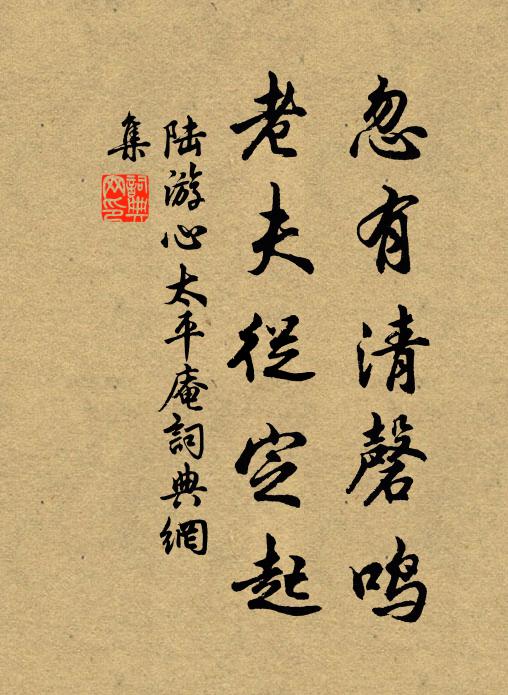 忽有清磬鸣
老夫從定起
陆游心太平庵詞典網
集
詞典
网印